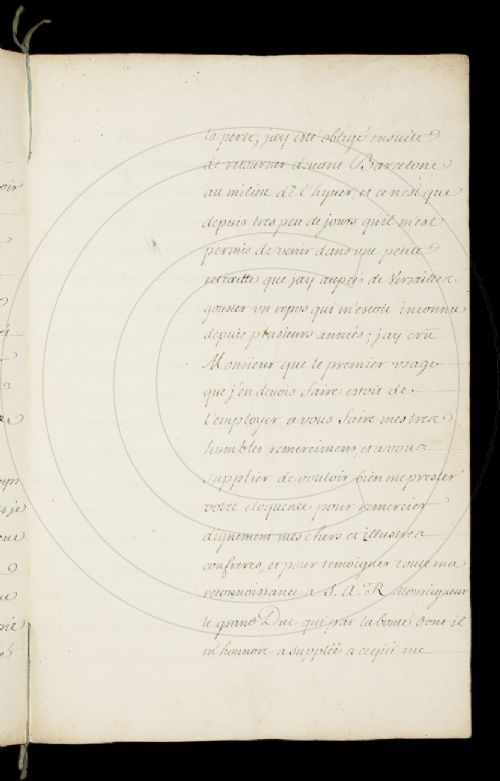 la perte, jay esté obligé ensuite
de retourner devant Barcelone
au milieu de l'hyuer et ce n'est que
depuis tres peu de jours qu'il m'est
permis de venir dans une petite
retraitte que jay auprés de Versailles
gouster vn repos qui m'estoit inconnu
depuis plusieurs années; jay crû
Monsieur que le premier vsage
que j'en deuois faire estoit de
l'employer a vous faire mes tres
humbles remerciments, et a vous
supplier de vouloir bien me prester
votre eloquence pour remercier
dignement mes chers et illustres
confreres, et pour temoigner toute ma
reconnoissance a S. A. R. Monseigneur
le grand Duc qui par la bonté dont il
m'honnore a supplée a ce qui me